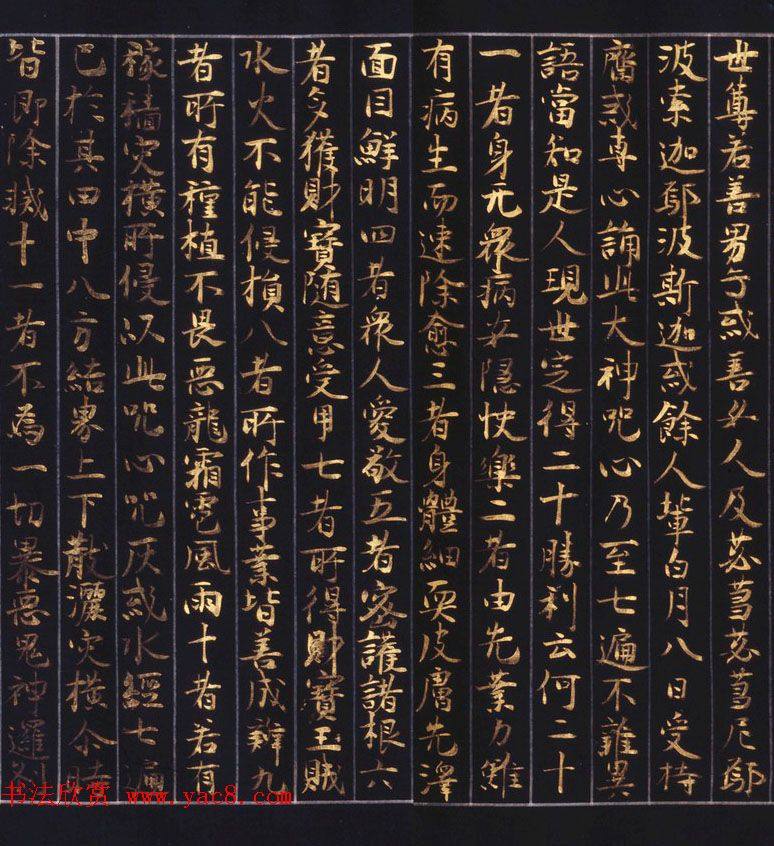 世尊若善男子或善女人及苾芻苾芻尼鄔
波索迦鄔波斯迦或餘人輩白月八日受持
齋戒專心誦此大神呪心乃至七遍不雜異
語當知是人現世定得二十勝利云何二十
一者身无眾病安隱快樂二者由先業力雖
有病生而速除愈三者身體細耎皮膚光澤
面目鮮明四者眾人愛敬五者密護諸根六
者多獲財寶隨意受用七者所得財寶王賊
水火不能侵損八者所作事業皆善成辦九
者所有種植不畏惡龍霜雹風雨十者若有
稼穡灾橫所侵以此呪心呪灰或水經七遍
已於其田中八方結界上下散灑灾橫尒時
皆即除滅十一者不為一切暴惡鬼神邏剎
书法欣赏 www.yac8.com